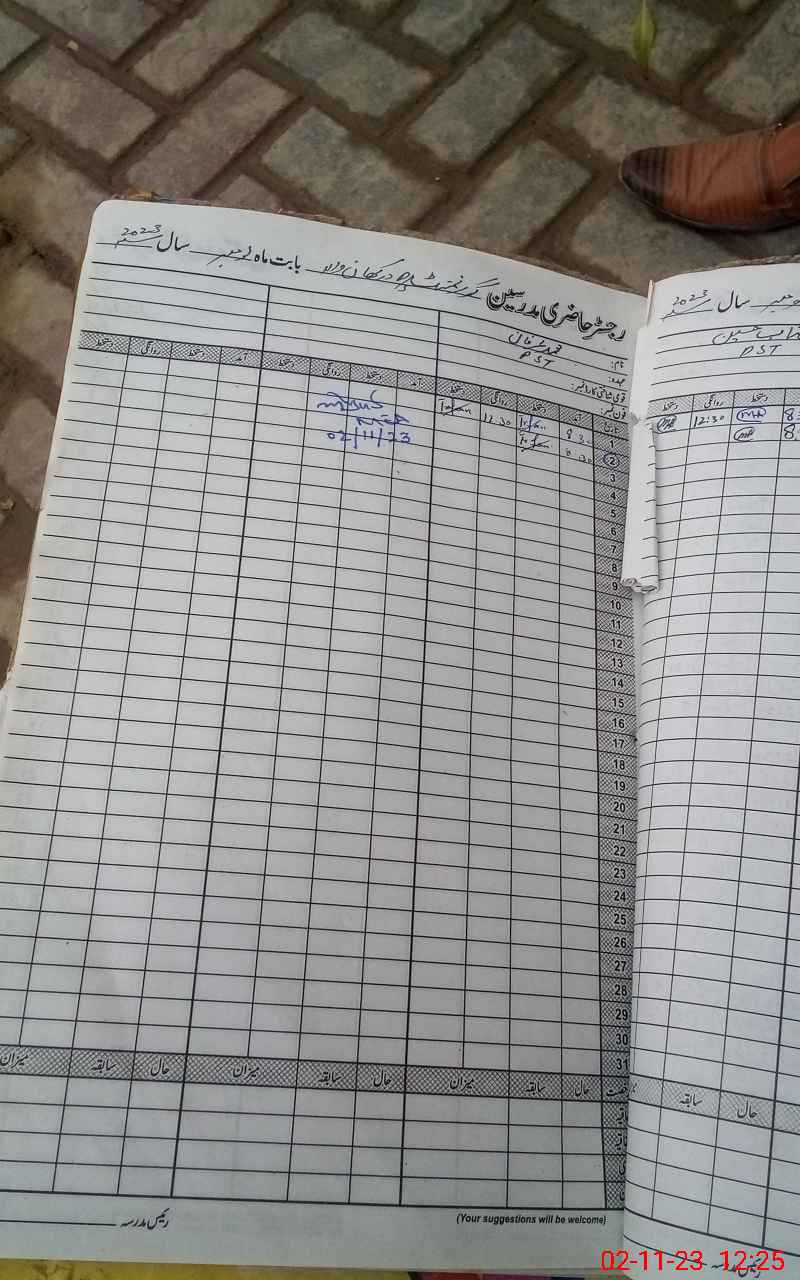 رجسٹر حاضری مدرسین گورنمنٹ بابت ماہ نومبر سال 2023
نام: محمد عرفان
عہدہ: PST
قومی شناختی کارڈ نمبر:
فون نمبر:
تاریخ آمد دستخط روانگی دستخط آمد دستخط روانگی دستخط آمد دستخط روانگی دستخط
1 8 30 12 30
2 8 30
02/11/23
3
4
5
6
7
8
9
10
11
12
13
14
15
16
17
18
19
20
21
22
23
24
25
26
27
28
29
30
31
حال سابقہ میزان حال سابقہ میزان حال سابقہ میزان
(Your suggestions will be welcome)
رئیس مدرسہ
سال 2023
PST
دستخط روانگی دستخط
12:30 8
8
سابقہ حال
رئیس مدرسہ
02-11-23 12:25